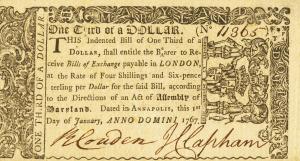 One Third of a DOLLAR. (No. 11365
THIS Indented Bill of One Third of a
DOLLAR, shall entitle the Bearer to Re-
ceive Bills of Exchange payable in LONDON,
at the Rate of Four Shillings and Six-pence
Sterling per Dollar for the said Bill, according
to the Directions of an Act of Assembly of
Maryland. Dated in ANNAPOLIS, this 1st
Day of January, ANNO DOMINI 1767.
R Couden J Clapham
ONE THIRD OF A DOLLAR